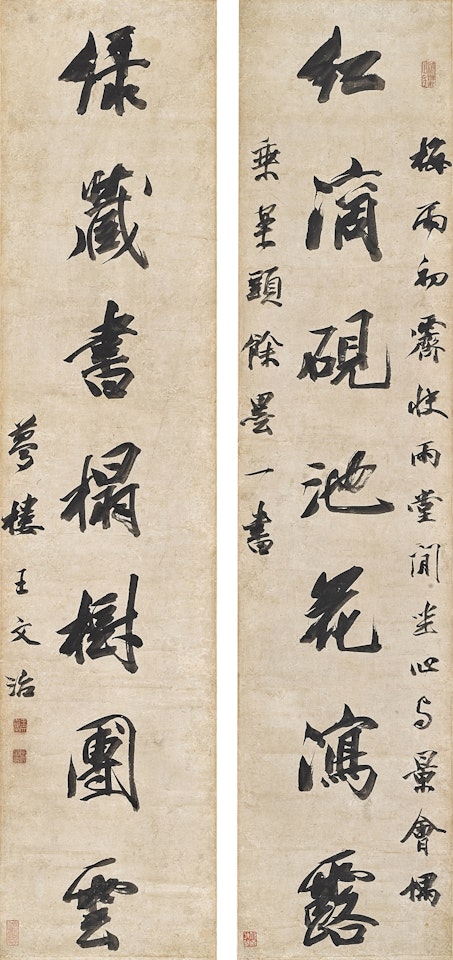 梅雨初霽快雨堂閒坐心与景會偶
紅滴硯池花瀉露
乘頭餘墨一書
綠藏書榻樹團雲
夢樓王文治